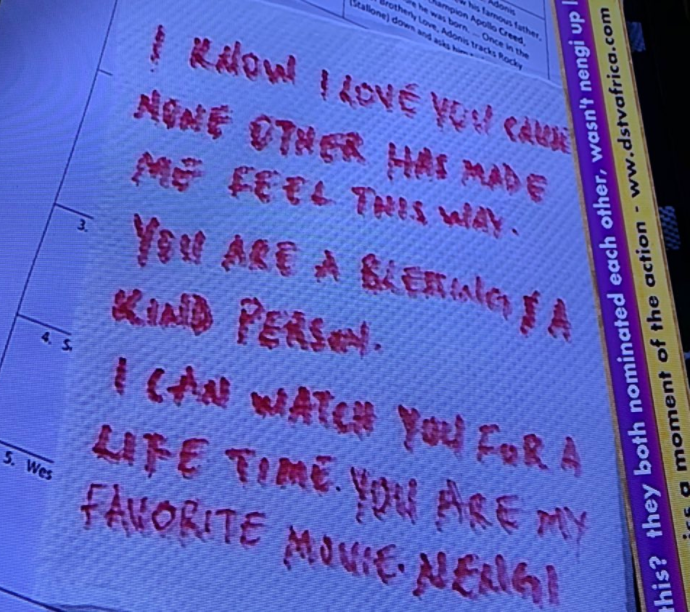 his famous father,
champion Apollo Creed,
he was born. ... Once in the
Brotherly Love, Adonis tracks Rocky
(Stallone) down and asks him
I KNOW I LOVE YOU CAUSE
NONE OTHER HAS MADE
ME FEEL THIS WAY.
YOU ARE A BLESSING & A
KIND PERSON.
I CAN WATCH YOU FOR A
LIFE TIME. YOU ARE MY
FAVORITE MOVIE. NENGI
3.
4. S
5. Wes
this? they both nominated each other, wasn't nengi up
a moment of the action - www.dstvafrica.com